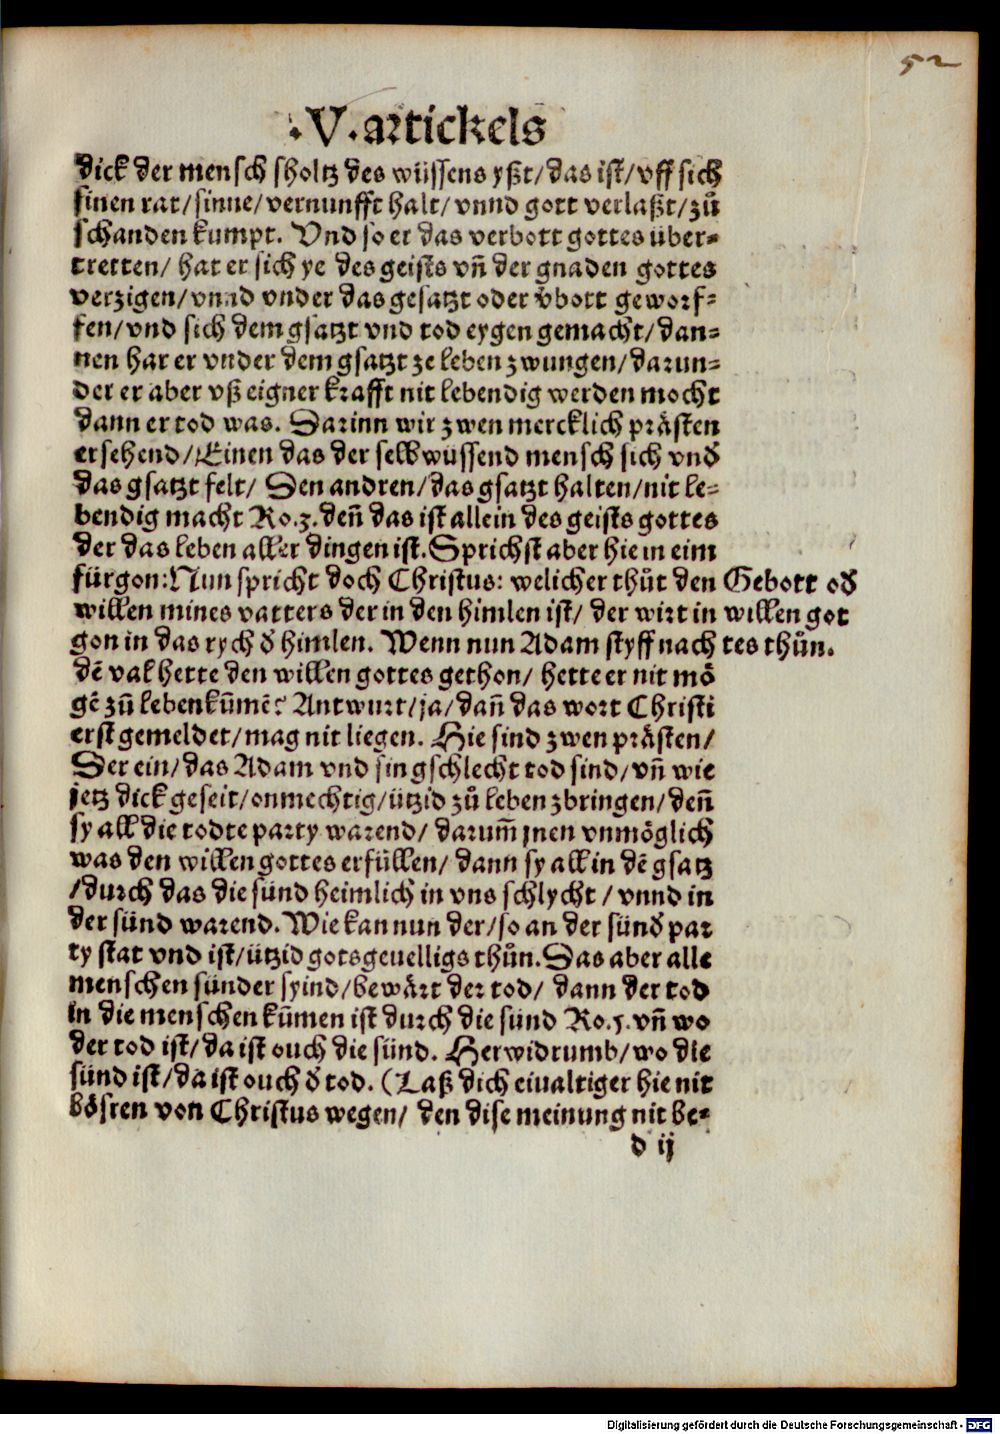 52
.V.artickels
dick der mensch sholtz des wüssens yßt/das ist/vff sich
sinen rat/sinne/vernunfft halt/vnnd gott verlaßt/zů
schanden kumpt. Vnd so er das verbott gottes über-
tretten/hat er sich ye des geists vñ der gnaden gottes
verzigen/vnnd vnder das gesatzt oder v̈bott geworf-
fen/vnd sich dem gsatzt vnd tod eygen gemacht/dan-
nen har er vnder dem gsatzt ze leben zwungen/darun-
der er aber vß eigner krafft nit lebendig werden mocht
dann er tod was. Darinn wir zwen mercklich prästen
ersehend/Einen das der selb wüssend mensch sich vnd̕
das gsatzt felt/ Den andren/das gsatzt halten/nit le-
bendig macht Ro.3.deñ das ist allein des geists gottes
der das leben aller dingen ist.Sprichst aber hie in eim
fürgon:Nun spricht doch Christus: welicher thůt den
willen mines vatters der in den himlen ist/ der wirt in
gon in das rych d̕ himlen. Wenn nun Adam styff nach
dẽ val hette den willen gottes gethon/ hette er nit mö
gẽ zů leben kũmẽ? Antwurt/ja/dañ das wort Christi
erst gemeldet/mag nit liegen. Hie sind zwen prästen/
Der ein/das Adam vnd sin gschlecht tod sind/vñ wie
jetz dick geseit/onmechtig/ützid zů leben zbringen/deñ
sy all die todte party warend/ darum̃ jnen vnmöglich
was den willen gottes erfüllen/ dann sy all in dẽ gsatz
/durch das die sünd heimlich in vns schlycht / vnnd in
der sünd warend.Wie kan nun der/so an der sünd̕ par
ty stat vnd ist/ützid gotsgeuelligs thůn.Das aber alle
menschen sünder syind/bewärt der tod/ dann der tod
in die menschen kũmen ist durch die sünd Ro.5.vñ wo
der tod ist/da ist ouch die sünd. Herwidrumb/wo die
sünd ist/da ist ouch d̕ tod. (Laß dich eiualtiger hie nit
bösren von Christus wegen/ den dise meinung nit be-
d ij
Gebott od̕
willen got
tes thůn.
Digitalisierung gefördert durch die Deutsche Forschungsgemeinschaft - DFG